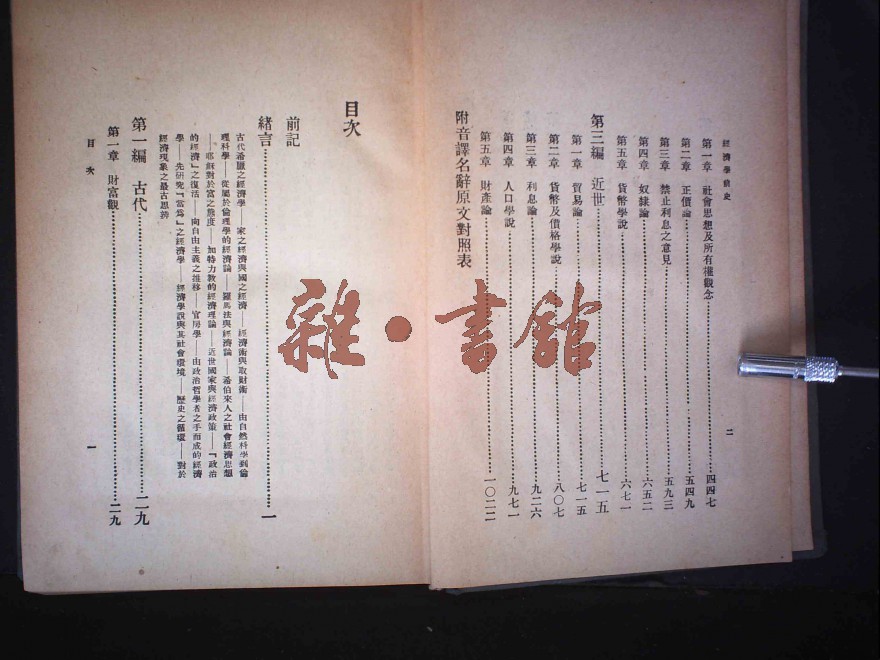 經濟學前史
二
第一章 社會思想及所有權觀念……四四七
第二章 正價論……五四九
第三章 禁止利息之意見……五九三
第四章 奴隸論……六五二
第五章 貨幣學說……六七一
第三編 近世……七一五
第一章 貿易論……七一五
第二章 貨幣及價格學說……八〇七
第三章 利息論……九二六
第四章 人口學說……九七一
第五章 財產論……一〇二二
附音譯名辭原文對照表
目次
前記
緒言……一
古代希臘之經濟學——家之經濟與國之經濟——經濟術與取財術——由自然科學到倫
理科學——從屬於倫理學的經濟論——羅馬法與經濟論——希伯來人之社會經濟思想
——耶穌對於富之態度——加特力教的經濟理論——近世國家與經濟政策——「政治
的經濟」之復活——向自由主義之推移——官房學——由政治哲學者之手而成的經濟
學——先研究「當為」之經濟學——經濟學說與其社會環境——歷史之循環——對於
經濟現象之最古思辨
第一編 古代……二九
第一章 財富觀……二九
目次
一
雜·書館